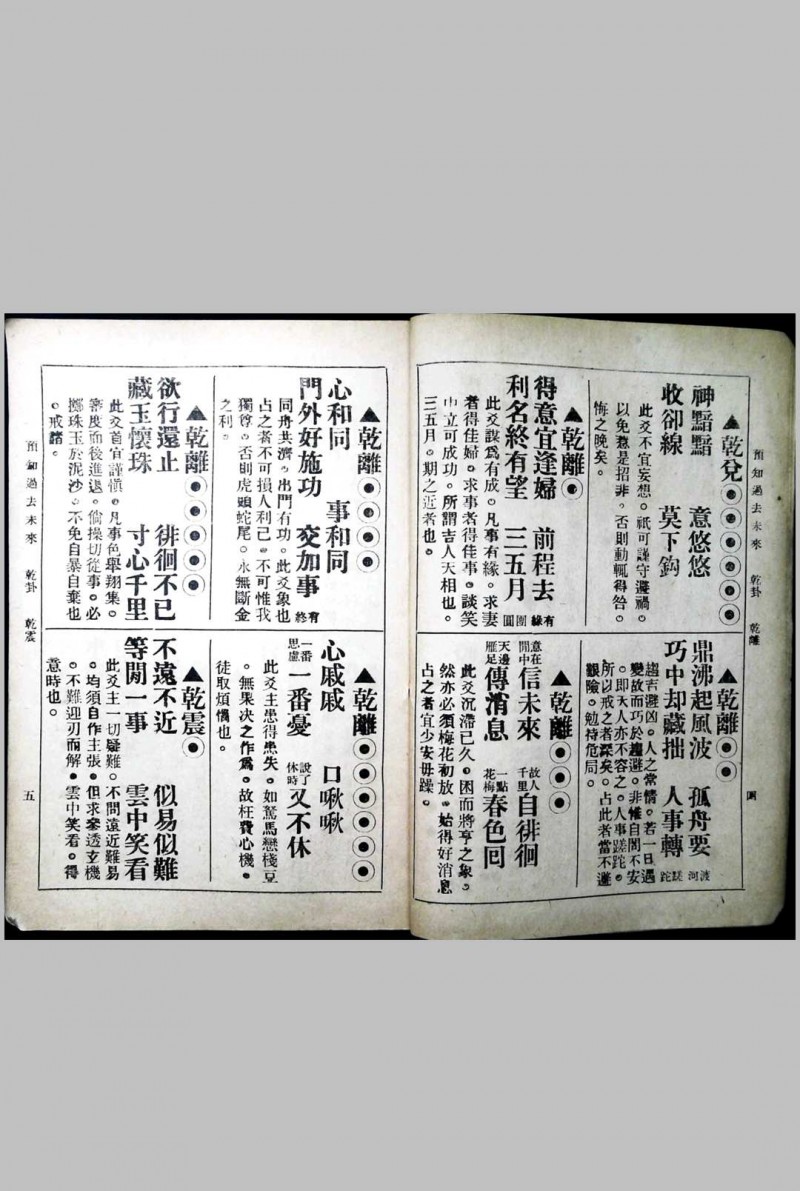 預知過去未來 乾卦 乾離
四
▲乾兌
神黯黯 意悠悠
收卻線 莫下鈎
此爻不宜妄想。祇可謹守避禍。
以免惹是招非。否則動輒得咎。
悔之晚矣。
▲乾離
鼎沸起風波 孤舟要渡河
巧中却藏拙 人事轉蹉跎
趨吉避凶。人之常情。若一旦遇
變故而巧於趨避。非惟自闇不安
。即大人亦不容之。人事蹉跎。
所以戒之者深矣。占此者當不避
艱險。勉持危局。
▲乾離
得意宜逢婦 前程去有緣
利名終有望 三五月團圓
此爻謀爲有成。凡事有緣。求妻
者得佳婦。求事者得佳事。談笑
中立可成功。所謂吉人天相也。
三五月。期之近者也。
▲乾離
意在閒中信未來 故人千里自徘徊
天邊雁足傳消息 一點梅花春色回
此爻沉滯已久。困而將亨之象。
然亦必須梅花初放。始得好消息
占之者宜少安毋躁。
▲乾離
心和同 事和同
門外好施功 交加事有終
同舟共濟。出門有功。此爻象也
占之者不可損人利己。不可惟我
獨尊。否則虎頭蛇尾。永無斷金
之利。
▲乾離
心戚戚 口啾啾
一番思慮一番憂 說了休時又不休
此爻主患得患失。如駑馬戀棧豆
。無果决之作爲。故枉費心機。
徒取煩惱也。
▲乾離
欲行還止 徘徊不已
藏玉懷珠 寸心千里
此爻首宜謹愼。凡事色舉翔集。
審度而後進退。倘操切從事。必
擲珠玉於泥沙。不免自暴自棄也
。戒諸。
▲乾震
不遠不近 似易似難
等閒一事 雲中笑看
此爻主一切疑難。不問遠近難易
。均須自作主張。但求參透玄機
。不難迎刃而解。雲中笑看。得
意時也。
預知過去未來 乾卦 乾震
五